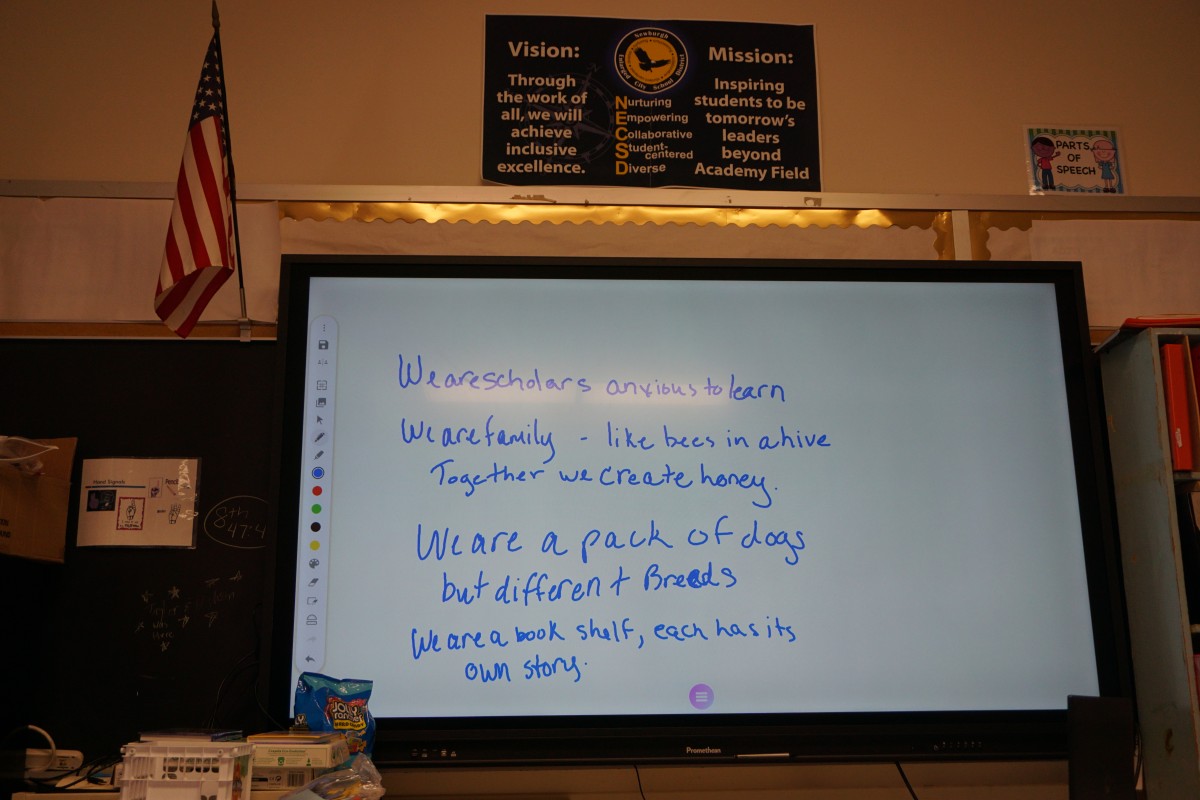 Vision:
Through
the work of
all, we will
achieve
inclusive
excellence.
Newburgh
Enlarged City School District
Nurturing
Empowering
Collaborative
Student-
centered
Diverse
Mission:
Inspiring
students to be
tomorrow's
leaders
beyond
Academy Field
PARTS
OF
SPEECH
We are scholars anxious to learn
We are family - like bees in a hive
Together we create honey.
We are a pack of dogs
but different Breeds
We are a book shelf, each has its
own story.
Hand Signals
8th
47:4
JOLLY
RANCHER
Promethean